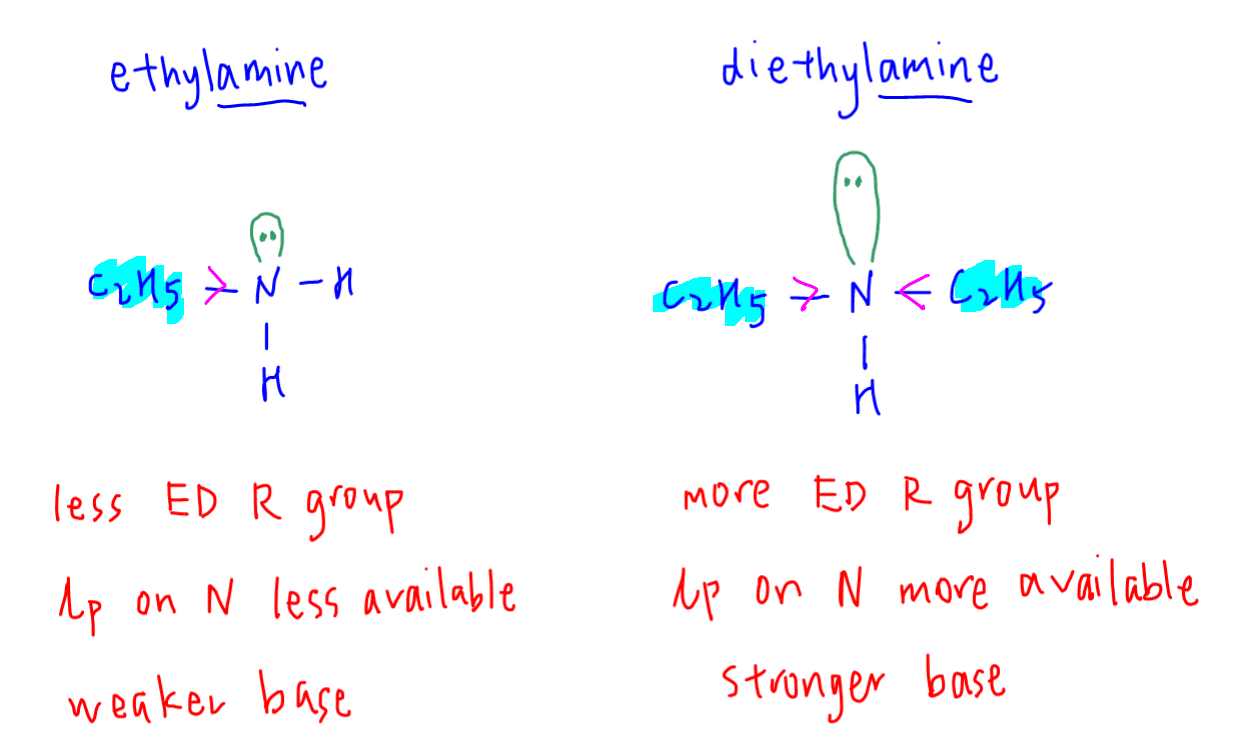 ethylamine
C2H5 > N - H
H
less ED R group
lp on N less available
weaker base
diethylamine
C2H5 > N < C2H5
H
more ED R group
lp on N more available
stronger base